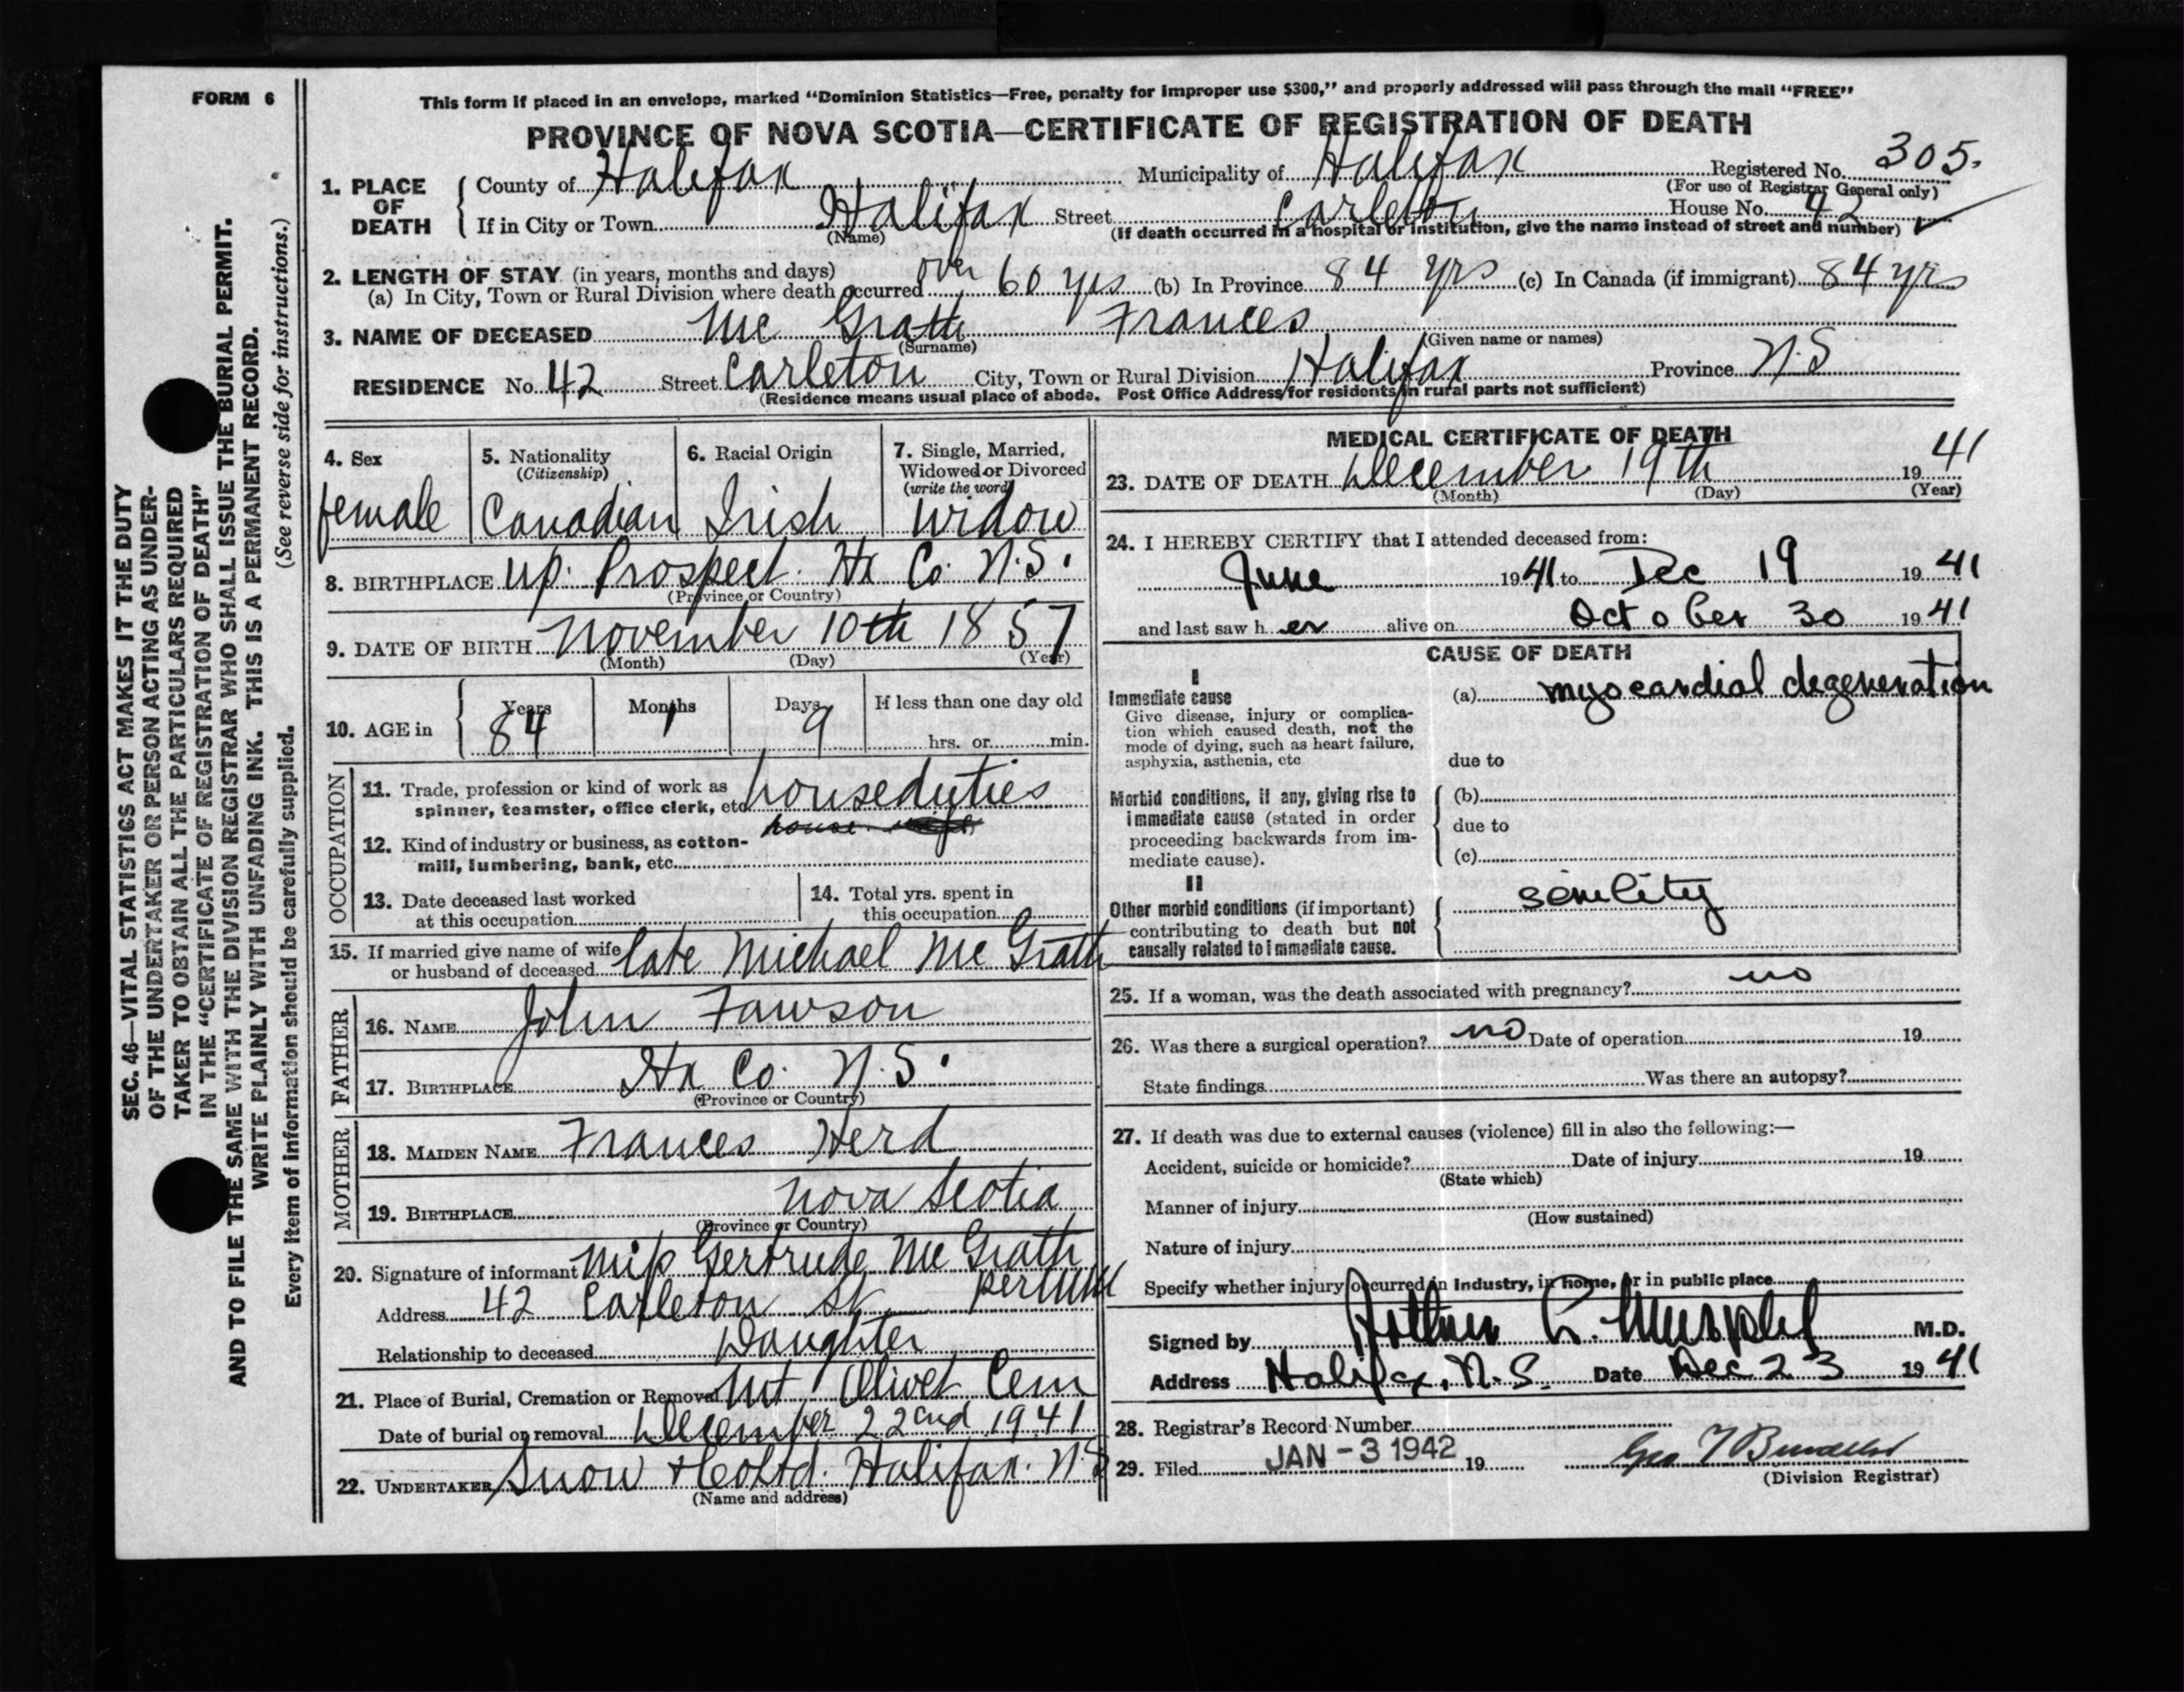 FORM 6
This form if placed in an envelope, marked “Dominion Statistics—Free, penalty for improper use $300,” and properly addressed will pass through the mail “FREE”
PROVINCE OF NOVA SCOTIA—CERTIFICATE OF REGISTRATION OF DEATH
SEC. 46—VITAL STATISTICS ACT MAKES IT THE DUTY
OF THE UNDERTAKER OR PERSON ACTING AS UNDER-
TAKER TO OBTAIN ALL THE PARTICULARS REQUIRED
IN THE “CERTIFICATE OF REGISTRATION OF DEATH”
AND TO FILE THE SAME WITH THE DIVISION REGISTRAR WHO SHALL ISSUE THE BURIAL PERMIT.
WRITE PLAINLY WITH UNFADING INK. THIS IS A PERMANENT RECORD.
Every item of information should be carefully supplied. (See reverse side for instructions.)
1. PLACE OF DEATH
County of Halifax Municipality of Halifax Registered No. 305.
(For use of Registrar General only)
If in City or Town Halifax Street Carleton House No. 42
(Name) (If death occurred in a hospital or institution, give the name instead of street and number)
2. LENGTH OF STAY (in years, months and days)
(a) In City, Town or Rural Division where death occurred over 60 yrs (b) In Province 84 yrs (c) In Canada (if immigrant) 84 yrs
3. NAME OF DECEASED Mc Grath Frances
(Surname) (Given name or names)
RESIDENCE No. 42 Street Carleton City, Town or Rural Division Halifax Province N.S
(Residence means usual place of abode. Post Office Address for residents in rural parts not sufficient)
4. Sex
female
5. Nationality
(Citizenship)
Canadian
6. Racial Origin
Irish
7. Single, Married,
Widowed or Divorced
(write the word)
widow
8. BIRTHPLACE Up. Prospect. Hx Co. N.S.
(Province or Country)
9. DATE OF BIRTH November 10th 1857
(Month) (Day) (Year)
10. AGE in
Years Months Days If less than one day old
84 1 9 hrs. or min.
OCCUPATION
11. Trade, profession or kind of work as
spinner, teamster, office clerk, etc. houseduties
house
12. Kind of industry or business, as cotton-
mill, lumbering, bank, etc.
13. Date deceased last worked
at this occupation
14. Total yrs. spent in
this occupation
15. If married give name of wife
or husband of deceased late Michael Mc Grath
FATHER
16. NAME John Fawson
17. BIRTHPLACE Hx Co. N.S.
(Province or Country)
MOTHER
18. MAIDEN NAME Frances Herd
19. BIRTHPLACE Nova Scotia
(Province or Country)
20. Signature of informant Miss Gertrude Mc Grath
Address 42 Carleton St
Relationship to deceased Daughter
21. Place of Burial, Cremation or Removal Mt Olivet Cem
Date of burial or removal December 22nd 1941
22. UNDERTAKER Snow & Co Ltd. Halifax. N.S
(Name and address)
MEDICAL CERTIFICATE OF DEATH
23. DATE OF DEATH December 19th 1941
(Month) (Day) (Year)
24. I HEREBY CERTIFY that I attended deceased from:
June 1941 to Dec 19 1941
and last saw her alive on October 30 1941
CAUSE OF DEATH
I
Immediate cause
Give disease, injury or complica-
tion which caused death, not the
mode of dying, such as heart failure,
asphyxia, asthenia, etc
(a) myocardial degeneration
due to
Morbid conditions, if any, giving rise to
immediate cause (stated in order
proceeding backwards from im-
mediate cause).
(b)
due to
(c)
II
Other morbid conditions (if important)
contributing to death but not
causally related to immediate cause.
senility
25. If a woman, was the death associated with pregnancy? no
26. Was there a surgical operation? no Date of operation 19
State findings Was there an autopsy?
27. If death was due to external causes (violence) fill in also the following:—
Accident, suicide or homicide? Date of injury 19
(State which)
Manner of injury
(How sustained)
Nature of injury
Specify whether injury occurred in industry, in home, or in public place
Signed by Arthur M.D.
Address Halifax, N.S. Date Dec 23 1941
28. Registrar's Record Number
29. Filed JAN - 3 1942 19
(Division Registrar)